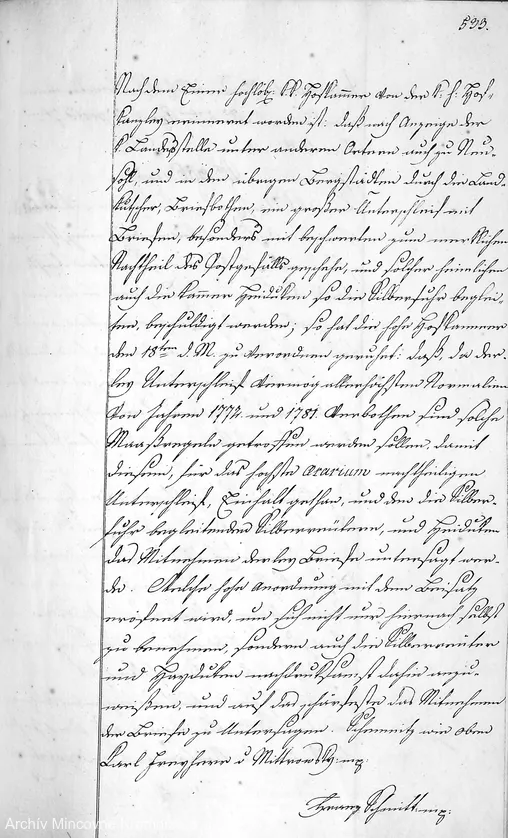 533.
Nachdem Einer hochlöb: k.k. Hofkammer von der k: h: Hof-
kanzley erinneret worden ist: daß nach Anzeige der
k. Landesstelle unter anderen Ortern auch zu Neu-
sohl, und in den übrigen Bergstädten durch die Land-
kutscher, Briefbothen, ein großer Unterschleif mit
Briefen, besonders mit beschwerten zum merklichen
Nachtheil des Postgefälls geschehe, und solcher heimlichen
auch die Kammer Heiduken so die Silberfuhr beglei-
ten, beschuldigt werden; so hat die hohe Hofkammer
den 18ten d. M. zu verordnen geruhet: daß, da der-
ley Unterschleif vermög allerhöchsten Normalien
von Jahren 1774. und 1781. verbothen sind solche
Maaßregeln getroffen werden sollen, damit
diesem, für das höchste Aerarium nachtheiligen
Unterschleif, Einhalt gethan, und den die Silber-
fuhr begleitenden Silberreutern, und Heiduken
das Mitnehmen derley Briefe untersagt wer-
de. Welche hohe Anordnung mit dem Beisatz
eröfnet wird, um sich nicht nur hiernach selbst
zu benehmen, sondern auch die Silberreuter
und Hayduken nachdruksamst dahin anzu-
weißen, und auf das schärfeste das Mitnehmen
der Briefe zu untersagen. Schemnitz wie oben
Karl Freyherr v Mittrowsky: mp.
Franz Schmitt mp:
Archív Mincovne